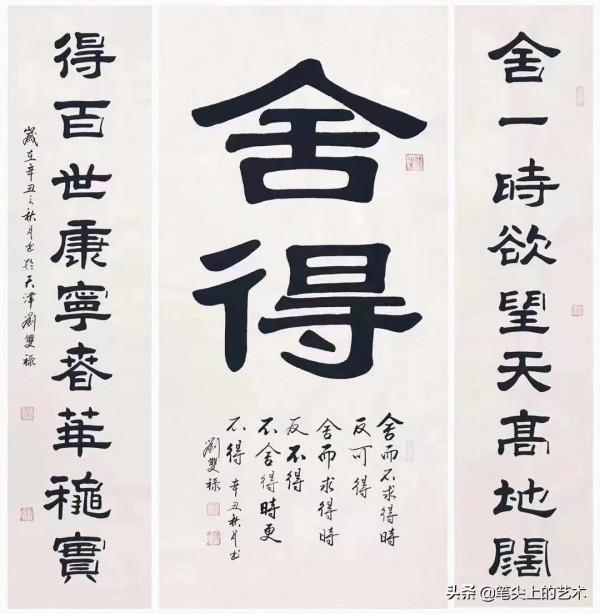 舍一時欲望天髙地闊
舍得
舍而不求得時
反可得
舍而求得時
反不得
不舍得時更
不得 辛丑秋月书
劉雙禄
得百世康寧春華穐實
歲在辛丑之秋月书於天津劉雙禄
头条 @笔尖上的艺术